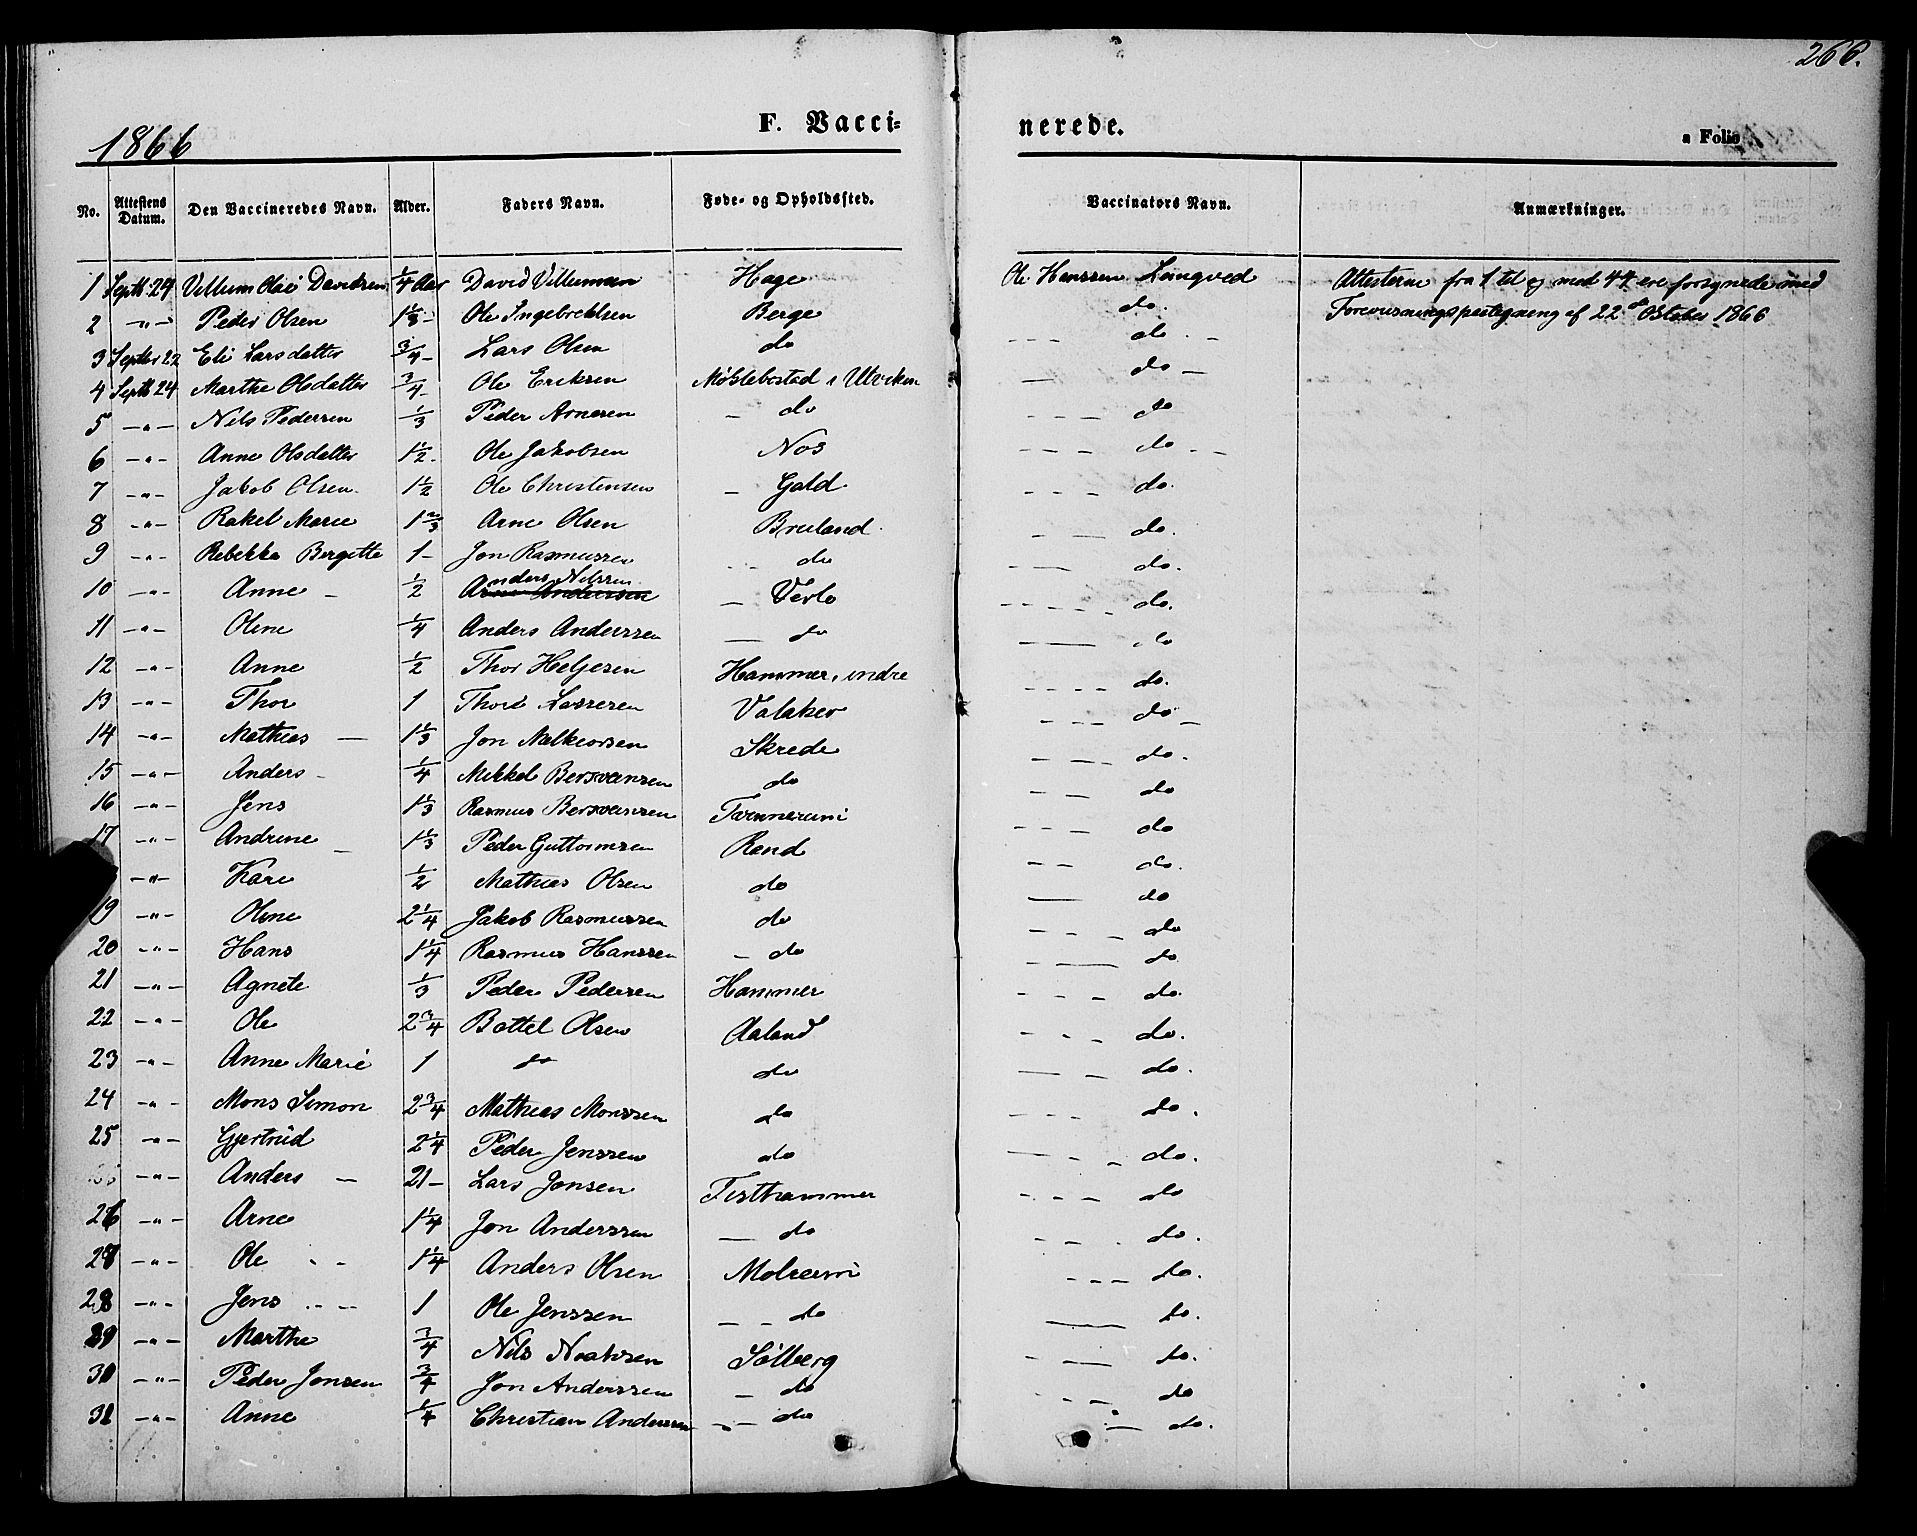 266.
1866
F. Vacci=
nerede.
a Folio
No. Attestens Datum. Den Vaccineredes Navn. Alder. Faders Navn. Føde- og Opholdssted. Vaccinators Navn. Anmærkninger.
1 Septb 24 Villum Olai Davidsen 1/4 Aar David Villumsen Hage Ole Hanssen Langved Attesterne fra 1 til og med 44 ere forsynede med
2 -"- Peder Olsen 1 1/3 - Ole Ingebretsen Berge do. Forevisningspaategning af 22de Oktober 1866
3 Septbr 22 Eli Larsdatter 3/4 - Lars Olsen do do
4 Septb 24 Marthe Olsdatter 3/4 - Ole Eriksen i Utviken do
5 -"- Nils Pedersen 1/3 Peder Arnesen do do
6 -"- Anne Olsdatter 1 1/2 - Ole Jakobsen Nos do
7 -"- Jakob Olsen 1 1/2 Ole Christensen - Gald do.
8 -"- Rakel Marie 1 2/3 Arne Olsen Bruland do.
9 -"- Rebekka Bergitte 1 - Jon Rasmussen do do.
10 -"- Anne - 1/2 Anders Nilssen - Verlo do.
11 -"- Oline 1/4 Anders Anderssen do do
12 -"- Anne 1/2 Thor Helgesen Hammer, indre do.
13 -"- Thor 1 Thore Lassesen Valaker do -
14 -"- Mathias - 1 1/3 Jon Melkiorsen Skrede do.
15 -"- Anders - 1/4 Mikkel Bersvensen do do
16 -"- Jens 1 1/3 Rasmus Bersvensen do
17 -"- Andrine 1 1/3 Peder Guttormsen Rand do.
-"- Kari 1/2 Mathias Olsen do do
19 -"- Oline 2 1/4 Jakob Rasmussen do do
20 -"- Hans 1 1/4 Rasmus Hanssen - do do
21 -"- Agnete 1/3 Peder Pedersen Hammer do.
22 -"- Ole 2 3/4 Bottel Olsen Aaland do.
23 -"- Anne Marie 1 do do do.
24 -"- Mons Simon 2 3/4 Mathias Monssen do do.
25 -"- Gjertrud 2 1/4 Peder Jenssen do do.
-"- Anders - 21 - Lars Jonsen Tisthammer do
26 -"- Arne 1 1/4 Jon Anderssen do do.
27 -"- Ole 1 1/4 Anders Olsen do.
28 -"- Jens 1 Ole Jenssen do do.
29 -"- Marthe 3/4 Nils Sølberg do.
30 -"- Peder Jonsen 3/4 Jon Anderssen - do do
31 -"- Anne 1/4 Christian Anderssen do do.